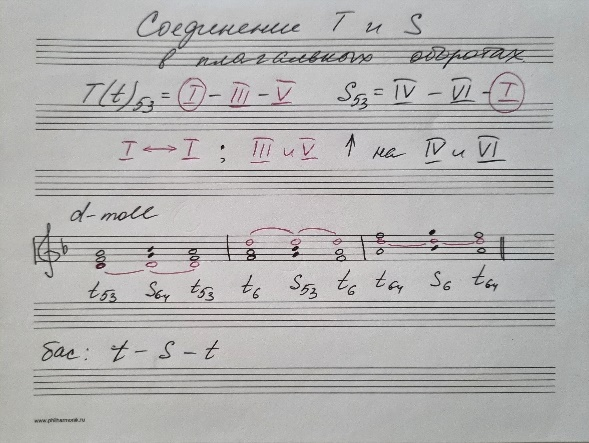 Соединение T и S
в плагальных оборотах
T(t)53 = I - III - V S53 = IV - VI - I
I ↔ I ; III и V ↑ на IV и VI
d-moll
t53 S64 t53 t6 S53 t6 t64 S6 t64
бас: t - s - t
www.philharmusik.ru